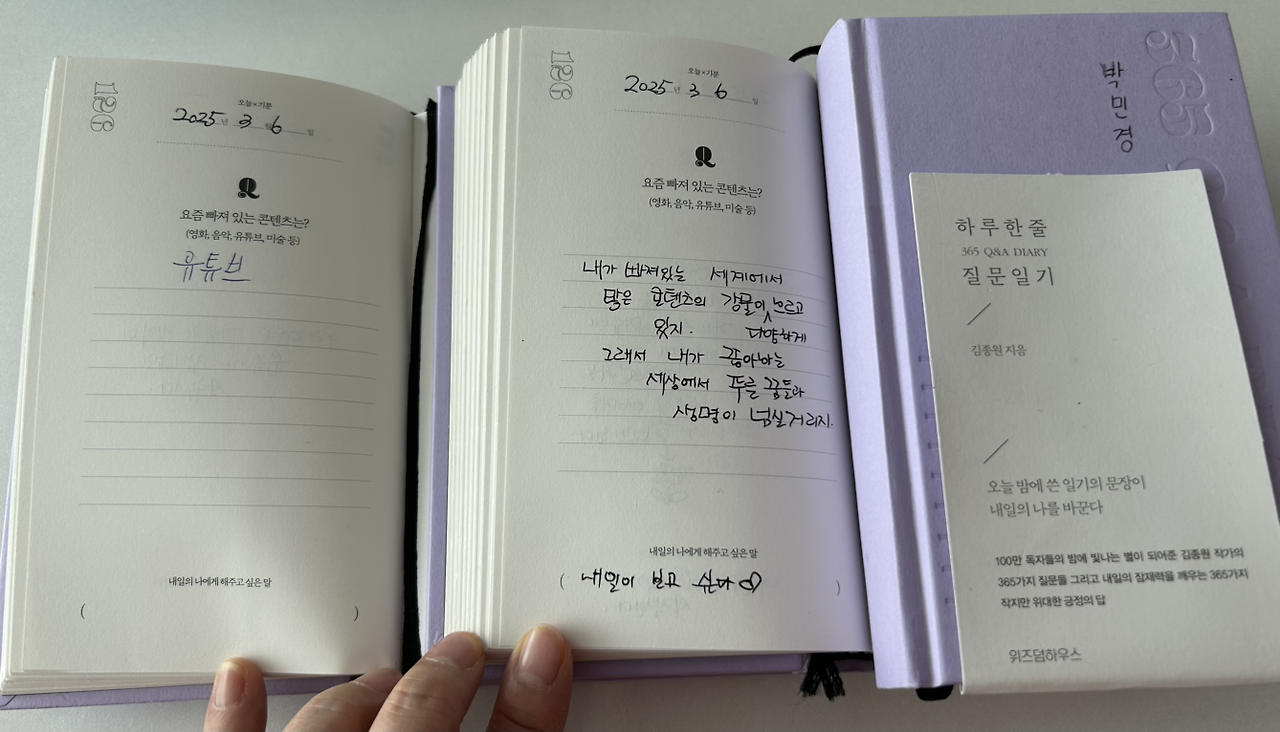 126
오늘×기분
2025년 3월 6일
Q
요즘 빠져 있는 콘텐츠는?
(영화, 음악, 유튜브, 미술 등)
유튜브
내일의 나에게 해주고 싶은 말
( )
126
오늘×기분
2025년 3 6 일
Q
요즘 빠져 있는 콘텐츠는?
(영화, 음악, 유튜브, 미술 등)
내가 빠져있는 세계에서
많은 콘텐츠의 강물이 다양하게 흐르고
있지.
그래서 내가 좋아하는
세상에서 푸른 꿈들과
생명이 넘실거리지.
내일의 나에게 해주고 싶은 말
( 내일이 보고 싶다♡ )
365
박민경
하루 한 줄
365 Q&A DIARY
질문 일기
김종원 지음
오늘 밤에 쓴 일기의 문장이
내일의 나를 바꾼다
100만 독자들의 밤에 빛나는 별이 되어준 김종원 작가의
365가지 질문들 그리고 내일의 잠재력을 깨우는 365가지
작지만 위대한 긍정의 답
위즈덤하우스